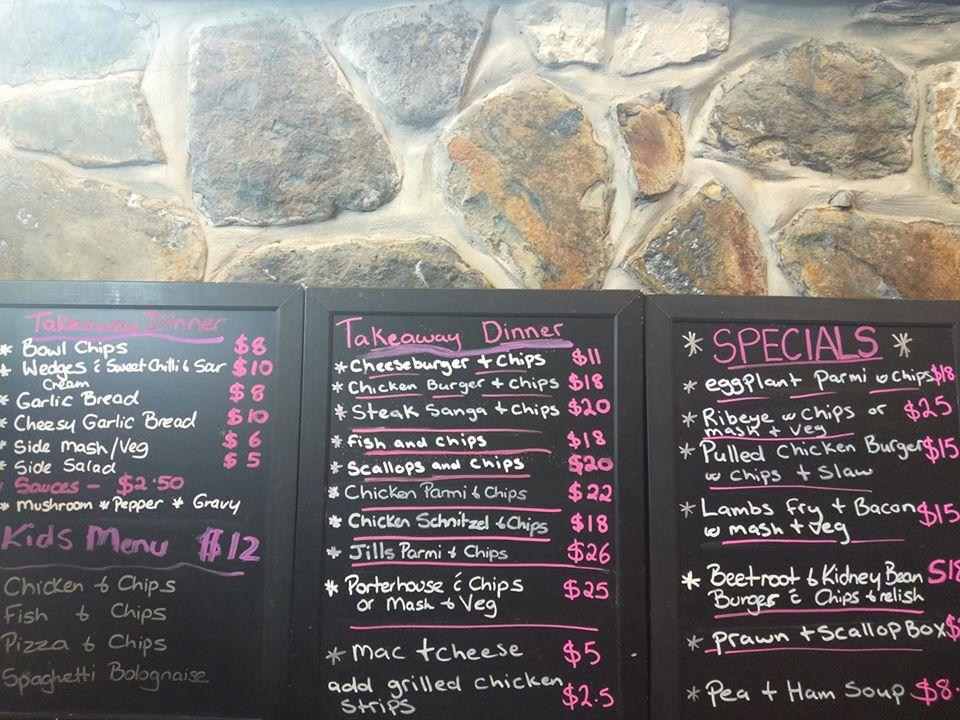 Takeaway Dinner
* Bowl Chips $8
* Wedges & Sweet Chilli & Sar Cream $10
* Garlic Bread $8
* Cheesy Garlic Bread $10
* Side Mash/Veg $6
* Side Salad $5
Sauces - $2.50
* Mushroom * Pepper * Gravy
Kids Menu $12
Chicken & Chips
Fish & Chips
Pizza & Chips
Spaghetti Bolognaise
Takeaway Dinner
* Cheeseburger + Chips $11
* Chicken Burger + Chips $18
* Steak Sanga + Chips $20
* Fish and Chips $18
* Scallops and Chips $20
* Chicken Parmi & Chips $22
* Chicken Schnitzel & Chips $18
* Jills Parmi & Chips $26
* Porterhouse & Chips $25
or Mash & Veg
* Mac + cheese $5
add grilled chicken
strips $2.5
* SPECIALS *
* eggplant Parmi w chips $18
* Ribeye w chips or $25
mash + veg
* Pulled Chicken Burger $15
w chips + Slaw
* Lambs Fry + Bacon $15
w mash + veg
* Beetroot & Kidney Bean $18
Burger & Chips & relish
* Prawn + Scallop Box
* Pea + Ham Soup $8.